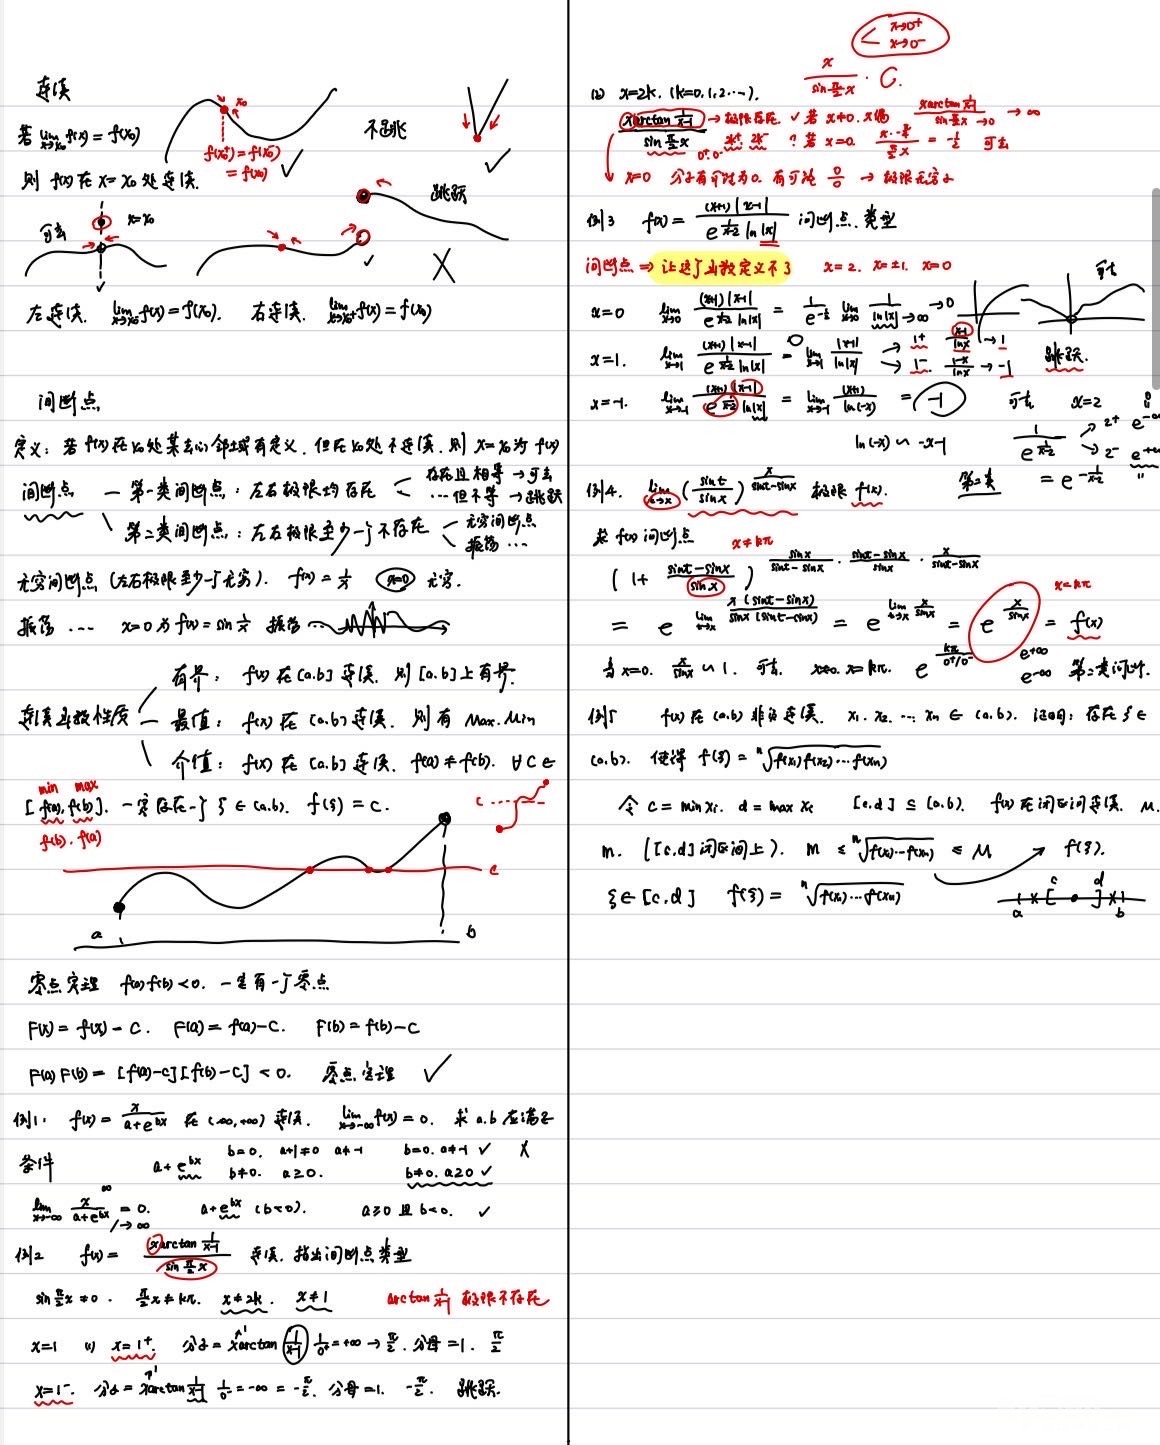 连续
若 lim x→x₀ f(x) = f(x₀)
x₀
f(x₀⁺) = f(x₀⁻)
= f(x₀)
不跳
则 f(x) 在 x = x₀ 处连续.
跳跃
可去
x=x₀
左连续. lim x→x₀⁻ f(x) = f(x₀). 右连续. lim x→x₀⁺ f(x) = f(x₀)
间断点
定义: 若 f(x) 在 x₀ 处某去心邻域有定义, 但在 x₀ 处不连续. 则 x=x₀ 为 f(x)
间断点 — 第一类间断点: 左右极限均存在 < 存在且相等 → 可去
… 但不等 → 跳跃
第二类间断点: 左右极限至少一个不存在 < 无穷间断点
振荡 …
无穷间断点 (左右极限至少一个无穷). f(x) = 1/x x=0 无穷.
振荡 … x=0 为 f(x) = sin 1/x 振荡
连续函数性质
有界: f(x) 在 [a.b] 连续. 则 [a.b] 上有界.
最值: f(x) 在 [a.b] 连续. 则有 Max. Min
介值: f(x) 在 [a.b] 连续. f(a) ≠ f(b). ∀C ∈
min max
[f(a), f(b)]. 一定存在一个 ξ ∈ (a.b). f(ξ) = C.
f(b). f(a)
c
c
a b
零点定理 f(a)f(b) < 0. 一定有一个零点
F(x) = f(x) - C. F(a) = f(a) - C. F(b) = f(b) - C
F(a)F(b) = [f(a)-C][f(b)-C] < 0. 零点定理 ✓
例1: f(x) = x/(a+e^{bx}) 在 (-∞,+∞) 连续. lim x→-∞ f(x) = 0. 求 a.b 应满足
条件 a+e^{bx} b=0. a+1≠0 a≠-1 b=0. a≠-1 ✓ X
b≠0. a≥0. b≠0. a≥0 ✓
lim x→-∞ x/(a+e^{bx}) = 0. a+e^{bx} (b<0). a≥0 且 b<0. ✓
∞
→ ∞
例2 f(x) = x arctan 1/(x-1) / sin π/2 x 连续. 指出间断点类型
sin π/2 x ≠ 0. π/2 x ≠ kπ. x ≠ 2k. x ≠ 1 arctan 1/(x-1) 极限不存在
x=1 (1) x=1⁺. 分子 = x arctan 1/(x-1) 1/0⁺ = +∞ → π/2. 分母 = 1. π/2
x=1⁻. 分子 = x arctan 1/(x-1) 1/0⁻ = -∞ = -π/2. 分母 = 1. -π/2. 跳跃.
x→0⁺
x→0⁻
x / sin π/2 x · C.
(2) x=2k. (k=0,1,2…).
x arctan 1/(x-1) / sin π/2 x → 极限存在. ✓ 若 x≠0. x偶 x arctan 1/(x-1) / sin π/2 x → 0 → ∞
0⁺ 0⁻ 2k⁺ 2k⁻ ? 若 x=0. x·-π/4 / π/2 x = -1/2 可去
x=0 分子有可能为0. 有可能 0/0 → 极限无穷
例3 f(x) = (x+1)|x-1| / e^{1/(x-2)} ln|x| 间断点. 类型
间断点 ⇒ 让这个函数定义不了 x=2. x=±1. x=0
x=0 lim x→0 (x+1)|x-1| / e^{1/(x-2)} ln|x| = 1/e^{-1/2} lim x→0 1/ln|x| → ∞ → 0
可去
x=1. lim x→1 (x+1)|x-1| / e^{1/(x-2)} ln|x| = lim x→1 |x-1|/ln|x| → 1⁺ (x-1)/ln x → 1
→ 1⁻. (1-x)/ln x → -1 跳跃.
x=-1. lim x→-1 (x+1)|x-1| / e^{1/(x-2)} ln|x| = lim x→-1 (x+1)/ln(-x) = -1 可去 x=2
ln(-x) ∽ -x-1 1/e^{1/(x-2)} → 2⁺ e^{-∞}
→ 2⁻ e^{+∞}
第二类 = e^{-1/(x-2)}
例4. lim t→x (sin t / sin x)^{x/(sin t - sin x)} 极限 f(x).
求 f(x) 间断点 x≠kπ
(1 + (sin t - sin x)/sin x)^{sin x/(sin t - sin x) · (sin t - sin x)/sin x · x/(sin t - sin x)}
x=kπ
= e^{lim t→x x(sin t - sin x)/sin x(sin t - sin x)} = e^{lim t→x x/sin x} = e^{x/sin x} = f(x)
当 x=0. x/sin x ∽ 1. 可去. x≠0. x=kπ. e^{kπ/0⁺/0⁻} e^{+∞} e^{-∞} 第二类间断.
例5 f(x) 在 (a.b) 非负连续. x₁. x₂. … xₙ ∈ (a.b). 证明: 存在 ξ ∈
(a.b). 使得 f(ξ) = ⁿ√f(x₁)f(x₂)…f(xₙ)
令 c = min xᵢ. d = max xᵢ [c.d] ⊆ (a.b). f(x) 在闭区间连续. M.
m. ([c.d] 闭区间上). m ≤ ⁿ√f(x₁)…f(xₙ) ≤ M → f(ξ).
ξ ∈ [c.d] f(ξ) = ⁿ√f(x₁)…f(xₙ)
c d
a b